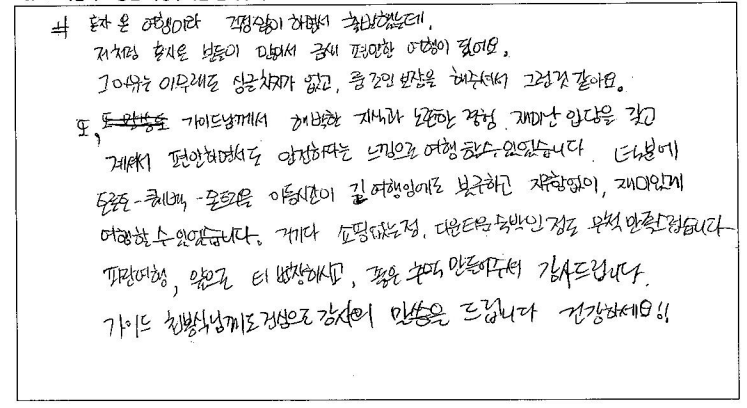 # 혼자 온 여행이라 걱정많이 하면서 출발했는데,
저처럼 혼자온 분들이 많아서 금새 편안한 여행이 됬어요.
그 이유는 아무래도 싱글차지가 없고, 룸 조인 보장을 해주셔서 그런것 같아요.
또, 가이드님께서 해박한 지식과 노련한 경험, 재미난 입담을 갖고
계셔서 편안하면서도 안전하다는 느낌으로 여행 할수 있었습니다. 덕분에
토론토-퀘백-몬트리올 이동시간이 긴 여행임에도 불구하고 지루함없이, 재미있게
여행할 수 있었습니다. 거기다 쇼핑없는점, 다운타운 숙박인 점도 무척 만족스럽습니다
파란여행, 앞으로 더 번창하시고, 좋은 추억 만들어주셔 감사드립니다.
가이드 님께도 진심으로 감사의 말씀을 드립니다 건강하세요!!